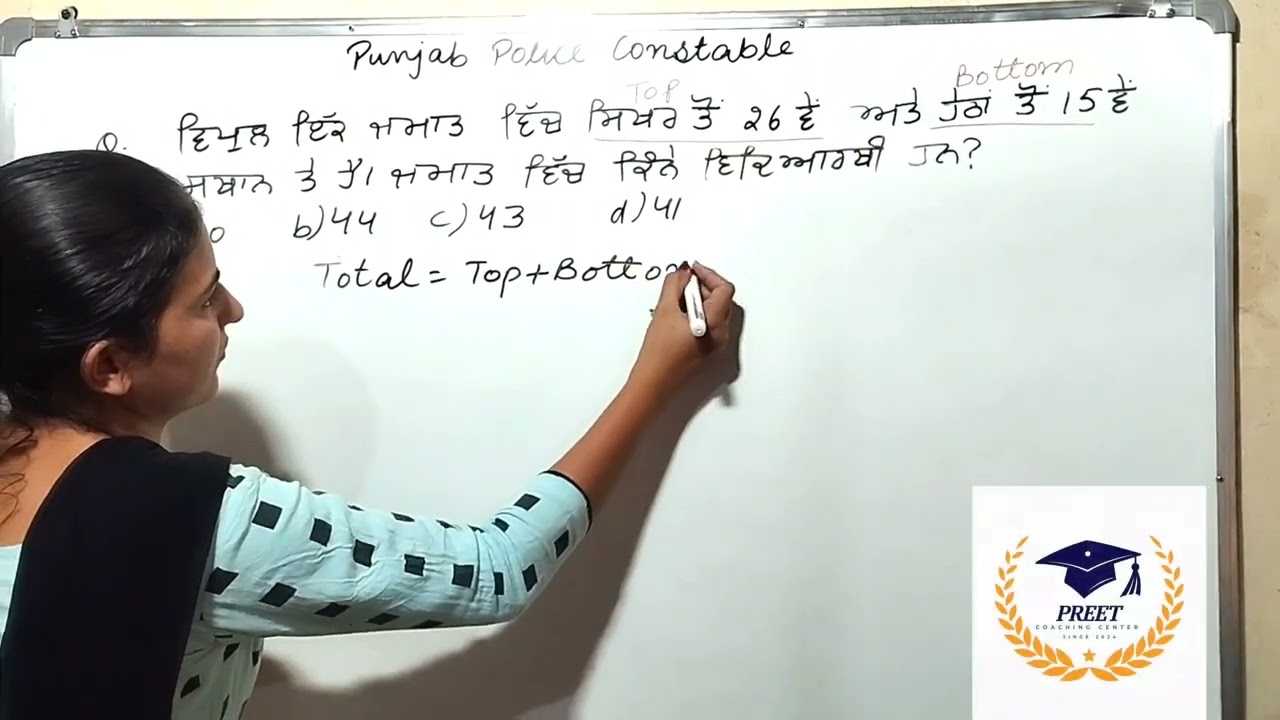 Punjab Police Constable
Top Bottom
Q. ਵਿਪੁਲ ਇੱਕ ਜਮਾਤ ਵਿੱਚ ਸਿਖਰ ਤੋਂ 26ਵੇਂ ਅਤੇ ਹੇਠਾਂ ਤੋਂ 15ਵੇਂ
ਸਥਾਨ ਤੇ ਹੈ। ਜਮਾਤ ਵਿੱਚ ਕਿੰਨੇ ਵਿਦਿਆਰਥੀ ਹਨ?
0 b) 44 c) 43 d) 41
Total = Top + Bottom
PREET
COACHING CENTER
SINCE 2024